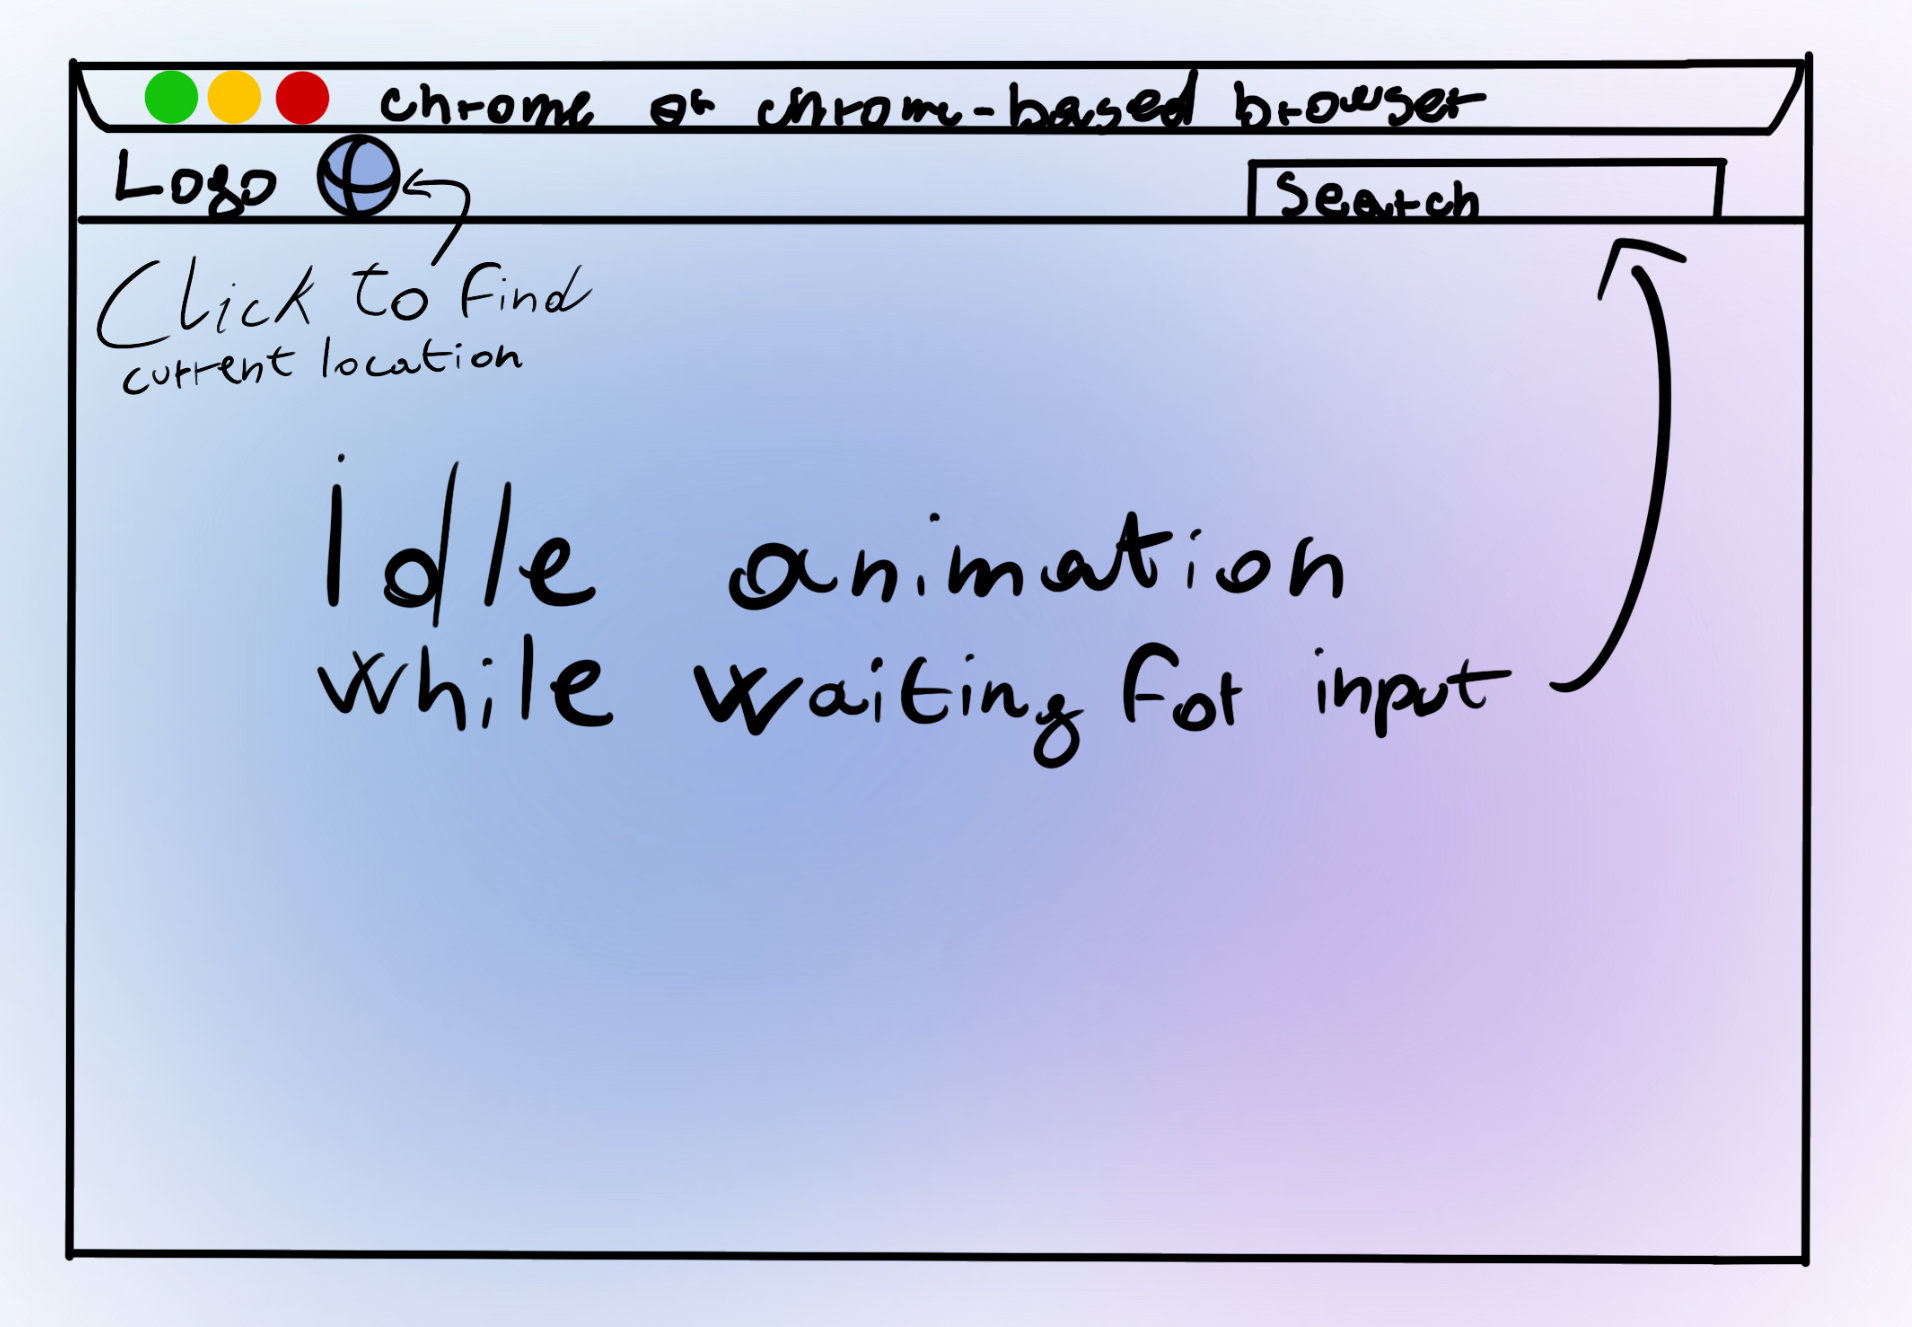 chrome or chrome-based browser
Logo
Search
Click to find
current location
Idle animation
while waiting for input